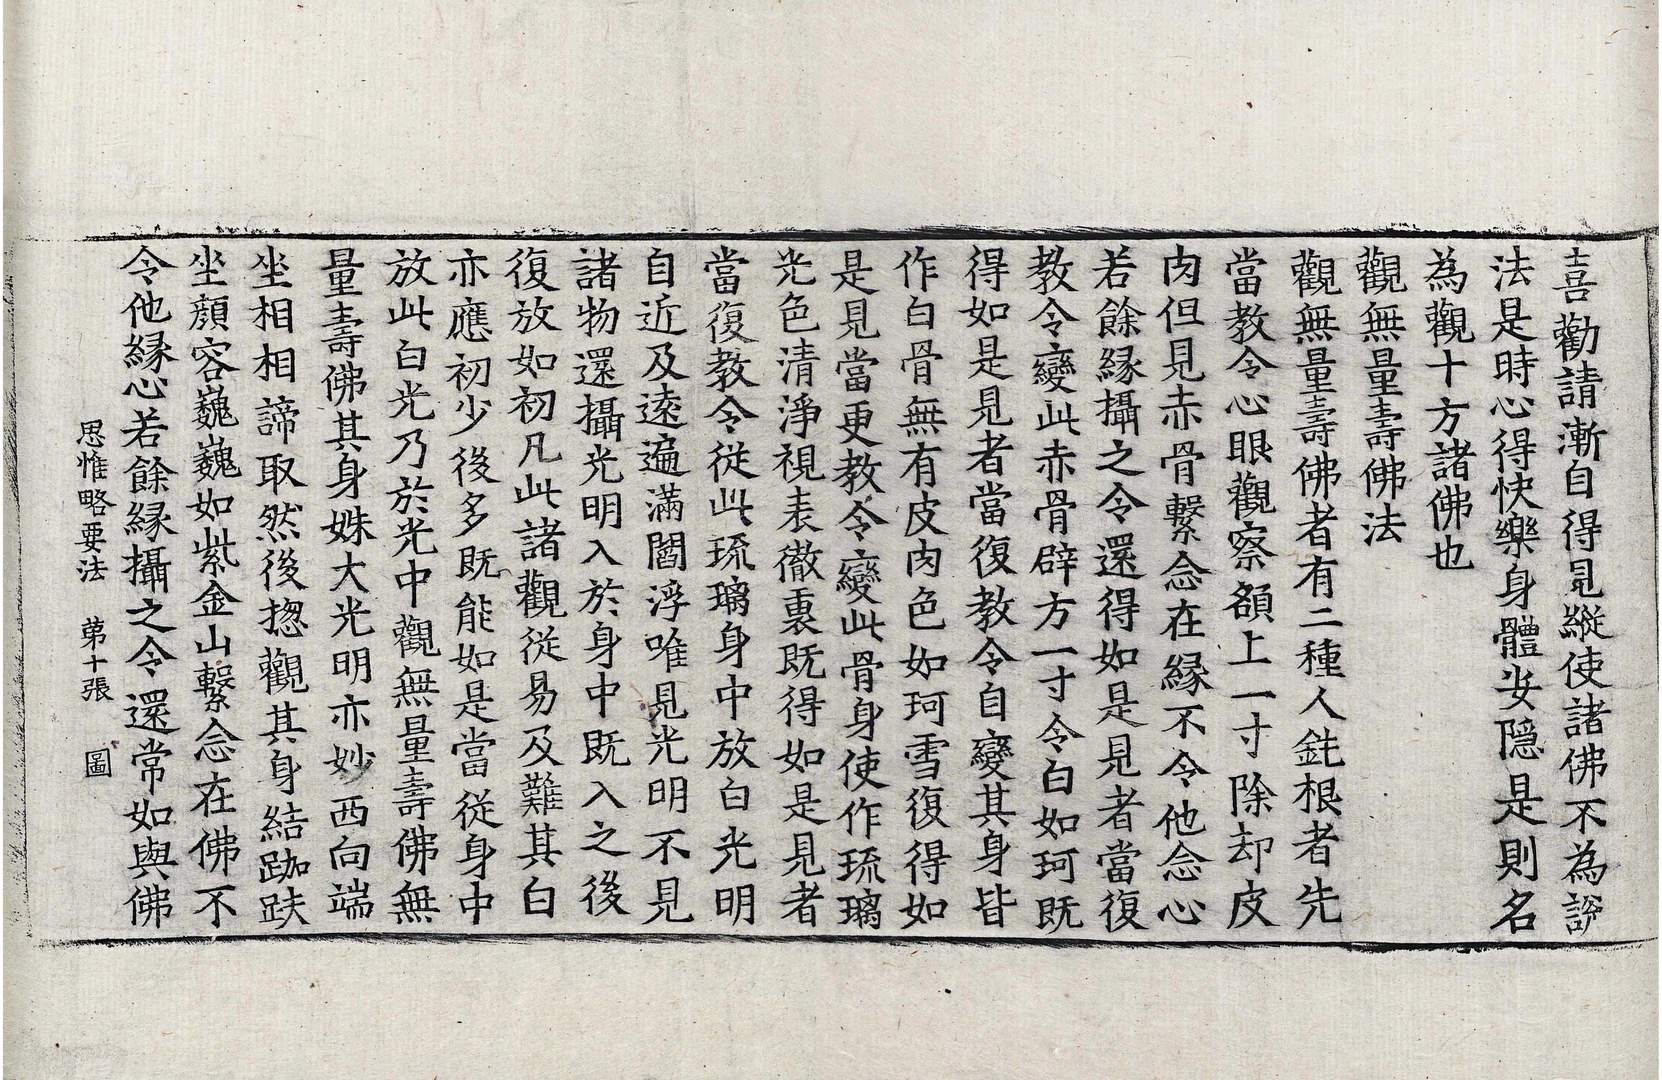 喜勸請漸自得見縱使諸佛不為說
法是時心得快樂身體安隱是則名
為觀十方諸佛也
觀無量壽佛法
觀無量壽佛者有二種人鈍根者先
當教令心眼觀察額上一寸除却皮
肉但見赤骨繫念在緣不令他念心
若餘緣攝之令還得如是見者當復
教令變此赤骨辟方一寸令白如珂既
得如是見者當復教令自變其身皆
作白骨無有皮肉色如珂雪復得如
是見當更教令變此骨身使作琉璃
光色清淨視表徹裏既得如是見者
當復教令從此琉璃身中放白光明
自近及遠遍滿閻浮唯見光明不見
諸物還攝光明入於身中既入之後
復放如初凡此諸觀從易及難其白
亦應初少後多既能如是當從身中
放此白光乃於光中觀無量壽佛無
量壽佛其身姝大光明亦妙西向端
坐相相諦取然後揔觀其身結跏趺
坐顏容巍巍如紫金山繫念在佛不
令他緣心若餘緣攝之令還常如與佛
思惟略要法　苐十張　圖